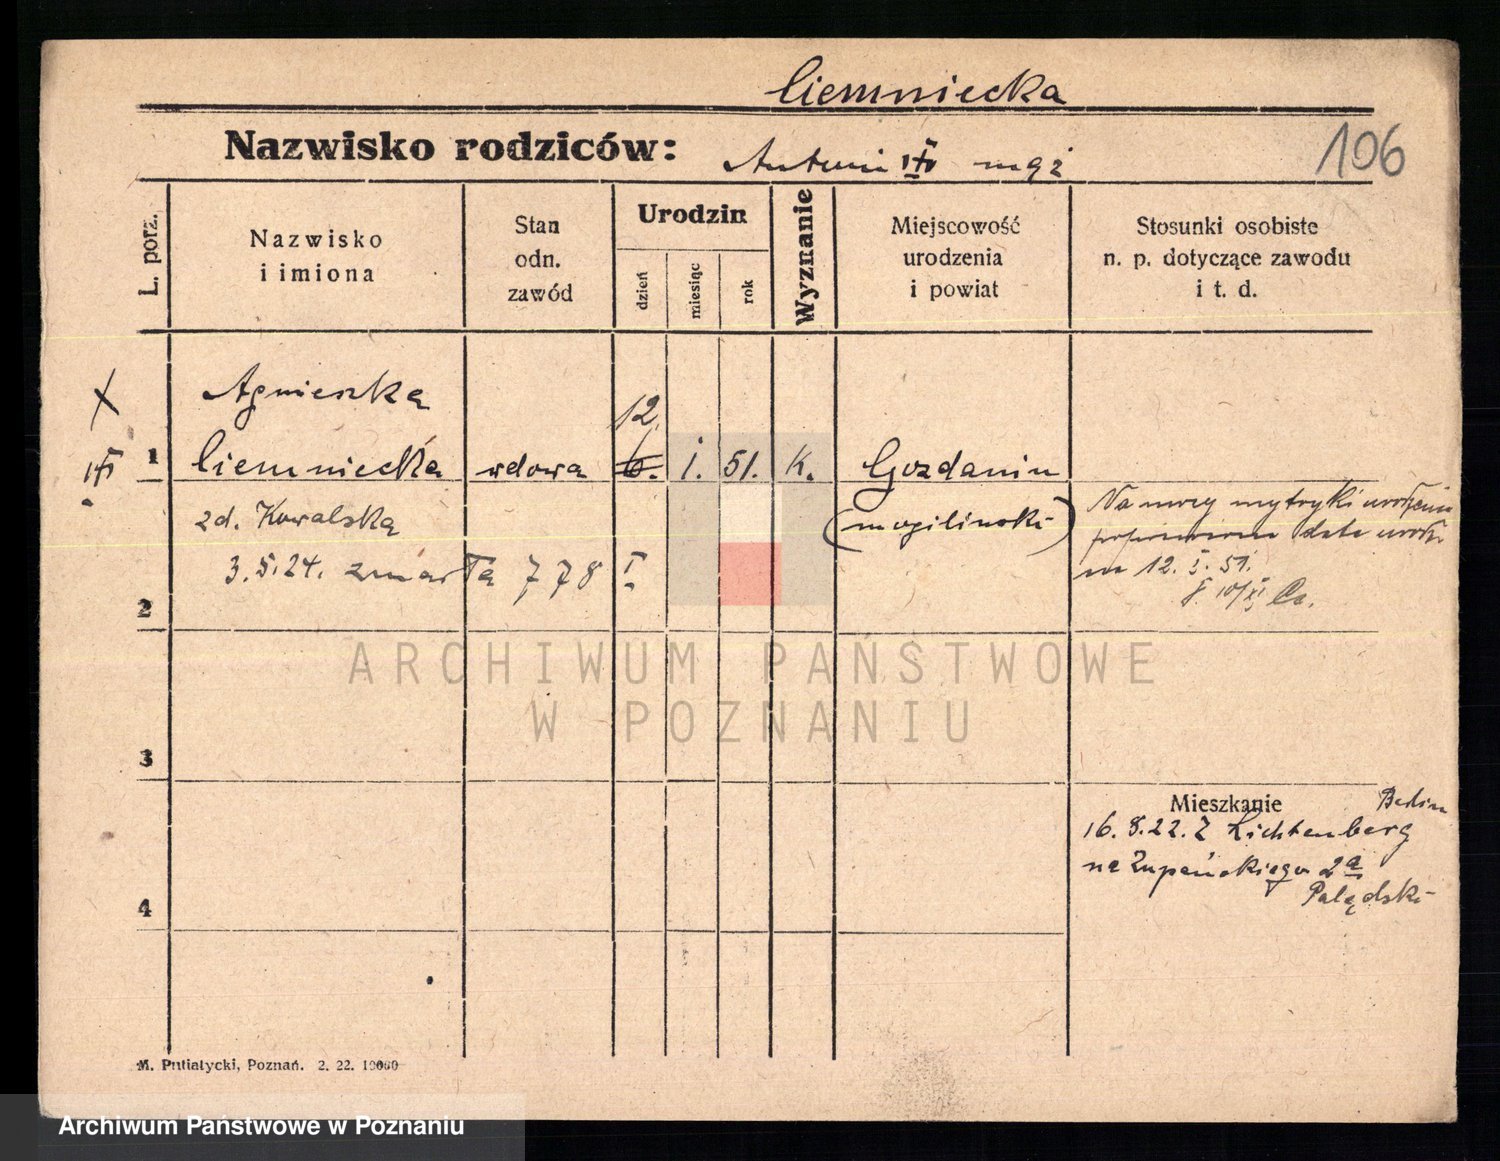 Ciemniecka
106
Nazwisko rodziców: Antoni mąż
L. porz.
Nazwisko
i imiona
Stan
odn.
zawód
Urodzin
dzień
miesiąc
rok
Wyznanie
Miejscowość
urodzenia
i powiat
Stosunki osobiste
n. p. dotyczące zawodu
i t. d.
X
Agnieszka
12.
1 Ciemniecka wdowa 6. 1. 51. K. Gozdanin
zd. Kowalska
(mogilinski)
Na mocy metryki urodzenia
date urodz.
na 12. I. 51.
3.5.24. zmarła 778 I
2
ARCHIWUM PAŃSTWOWE
W POZNANIU
3
Mieszkanie
Berlin
16.8.22. Z Lichtenberg
na Żupańskiego 2a
4
M. Putiatycki, Poznań. 2. 22. 10000
Archiwum Państwowe w Poznaniu